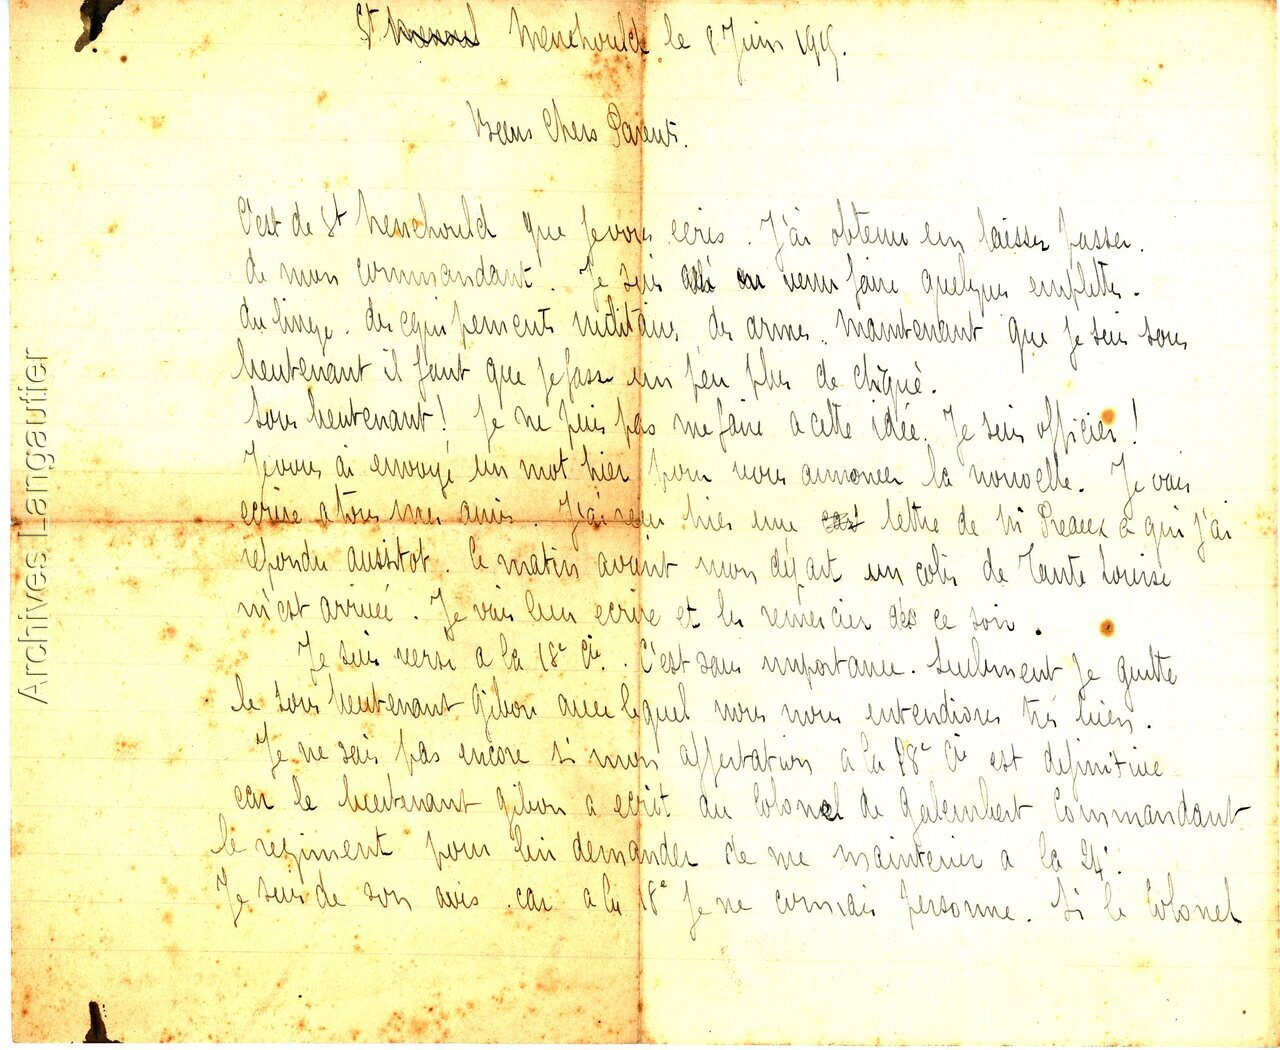 St Menehould le 8 Juin 1915.
Biens Chers Parents.
C'est de St Menehould que je vous ecris. J'ai obtenu un laissez passer.
de mon commandant. Je suis venu faire quelques emplettes.
du linge. des equipements militaires, des armes. Maintenant que je suis sous
lieutenant il faut que je fasse un peu plus de chiqué.
Sous lieutenant! Je ne puis pas me faire a cette idée. Je suis officier!
Je vous ai envoyé un mot hier pour vous annoncer la nouvelle. Je vais
ecrire a tous mes amis. J'ai reçu hier une lettre de Mr Preaux a qui j'ai
repondu aussitot. Ce matin avant mon départ un colis de Tante Louise
m'est arrivée. Je vais leur ecrire et les remercier dès ce soir.
Je suis versé a la 18e Cie. C'est sans importance. Seulement je quitte
le sous lieutenant Gibon avec lequel nous nous entendions très bien.
Je ne sais pas encore si mon affectation a la 18e Cie est definitive
car le lieutenant Gibon a ecrit au Colonel de Galembert Commandant
le regiment pour lui demander de me maintenir a la 24e.
Je suis de son avis car a la 18e je ne connais personne. Si le Colonel
Archives Langautier